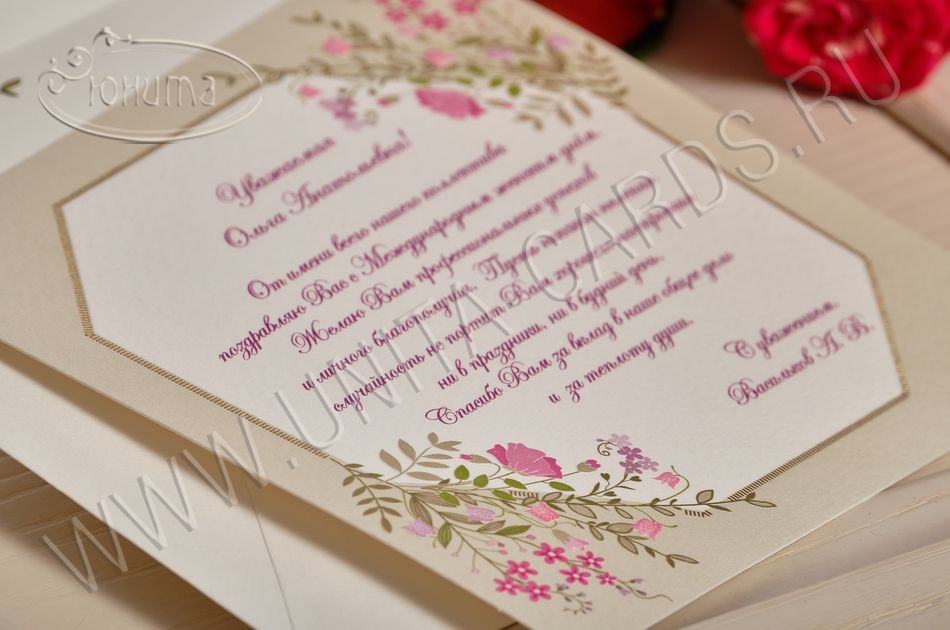 Юнита
Уважаемая
Ольга Анатольевна!
От имени всего нашего коллектива
поздравляю Вас с Международным женским днём.
Желаю Вам профессиональных успехов
и личного благополучия. Пусть никакая
случайность не портит Вам хорошего настроения
ни в праздники, ни в будний день.
Спасибо Вам за вклад в наше общее дело
и за теплоту души.
С уважением,
Васильков А. В.
WWW.UNITA-CARDS.RU